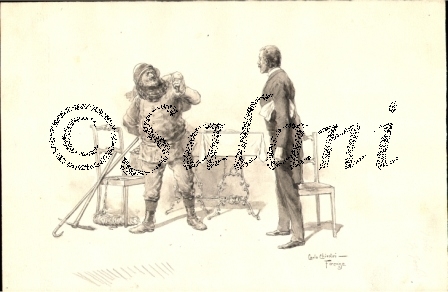 © Salani
Carlo Chiostri
Firenze